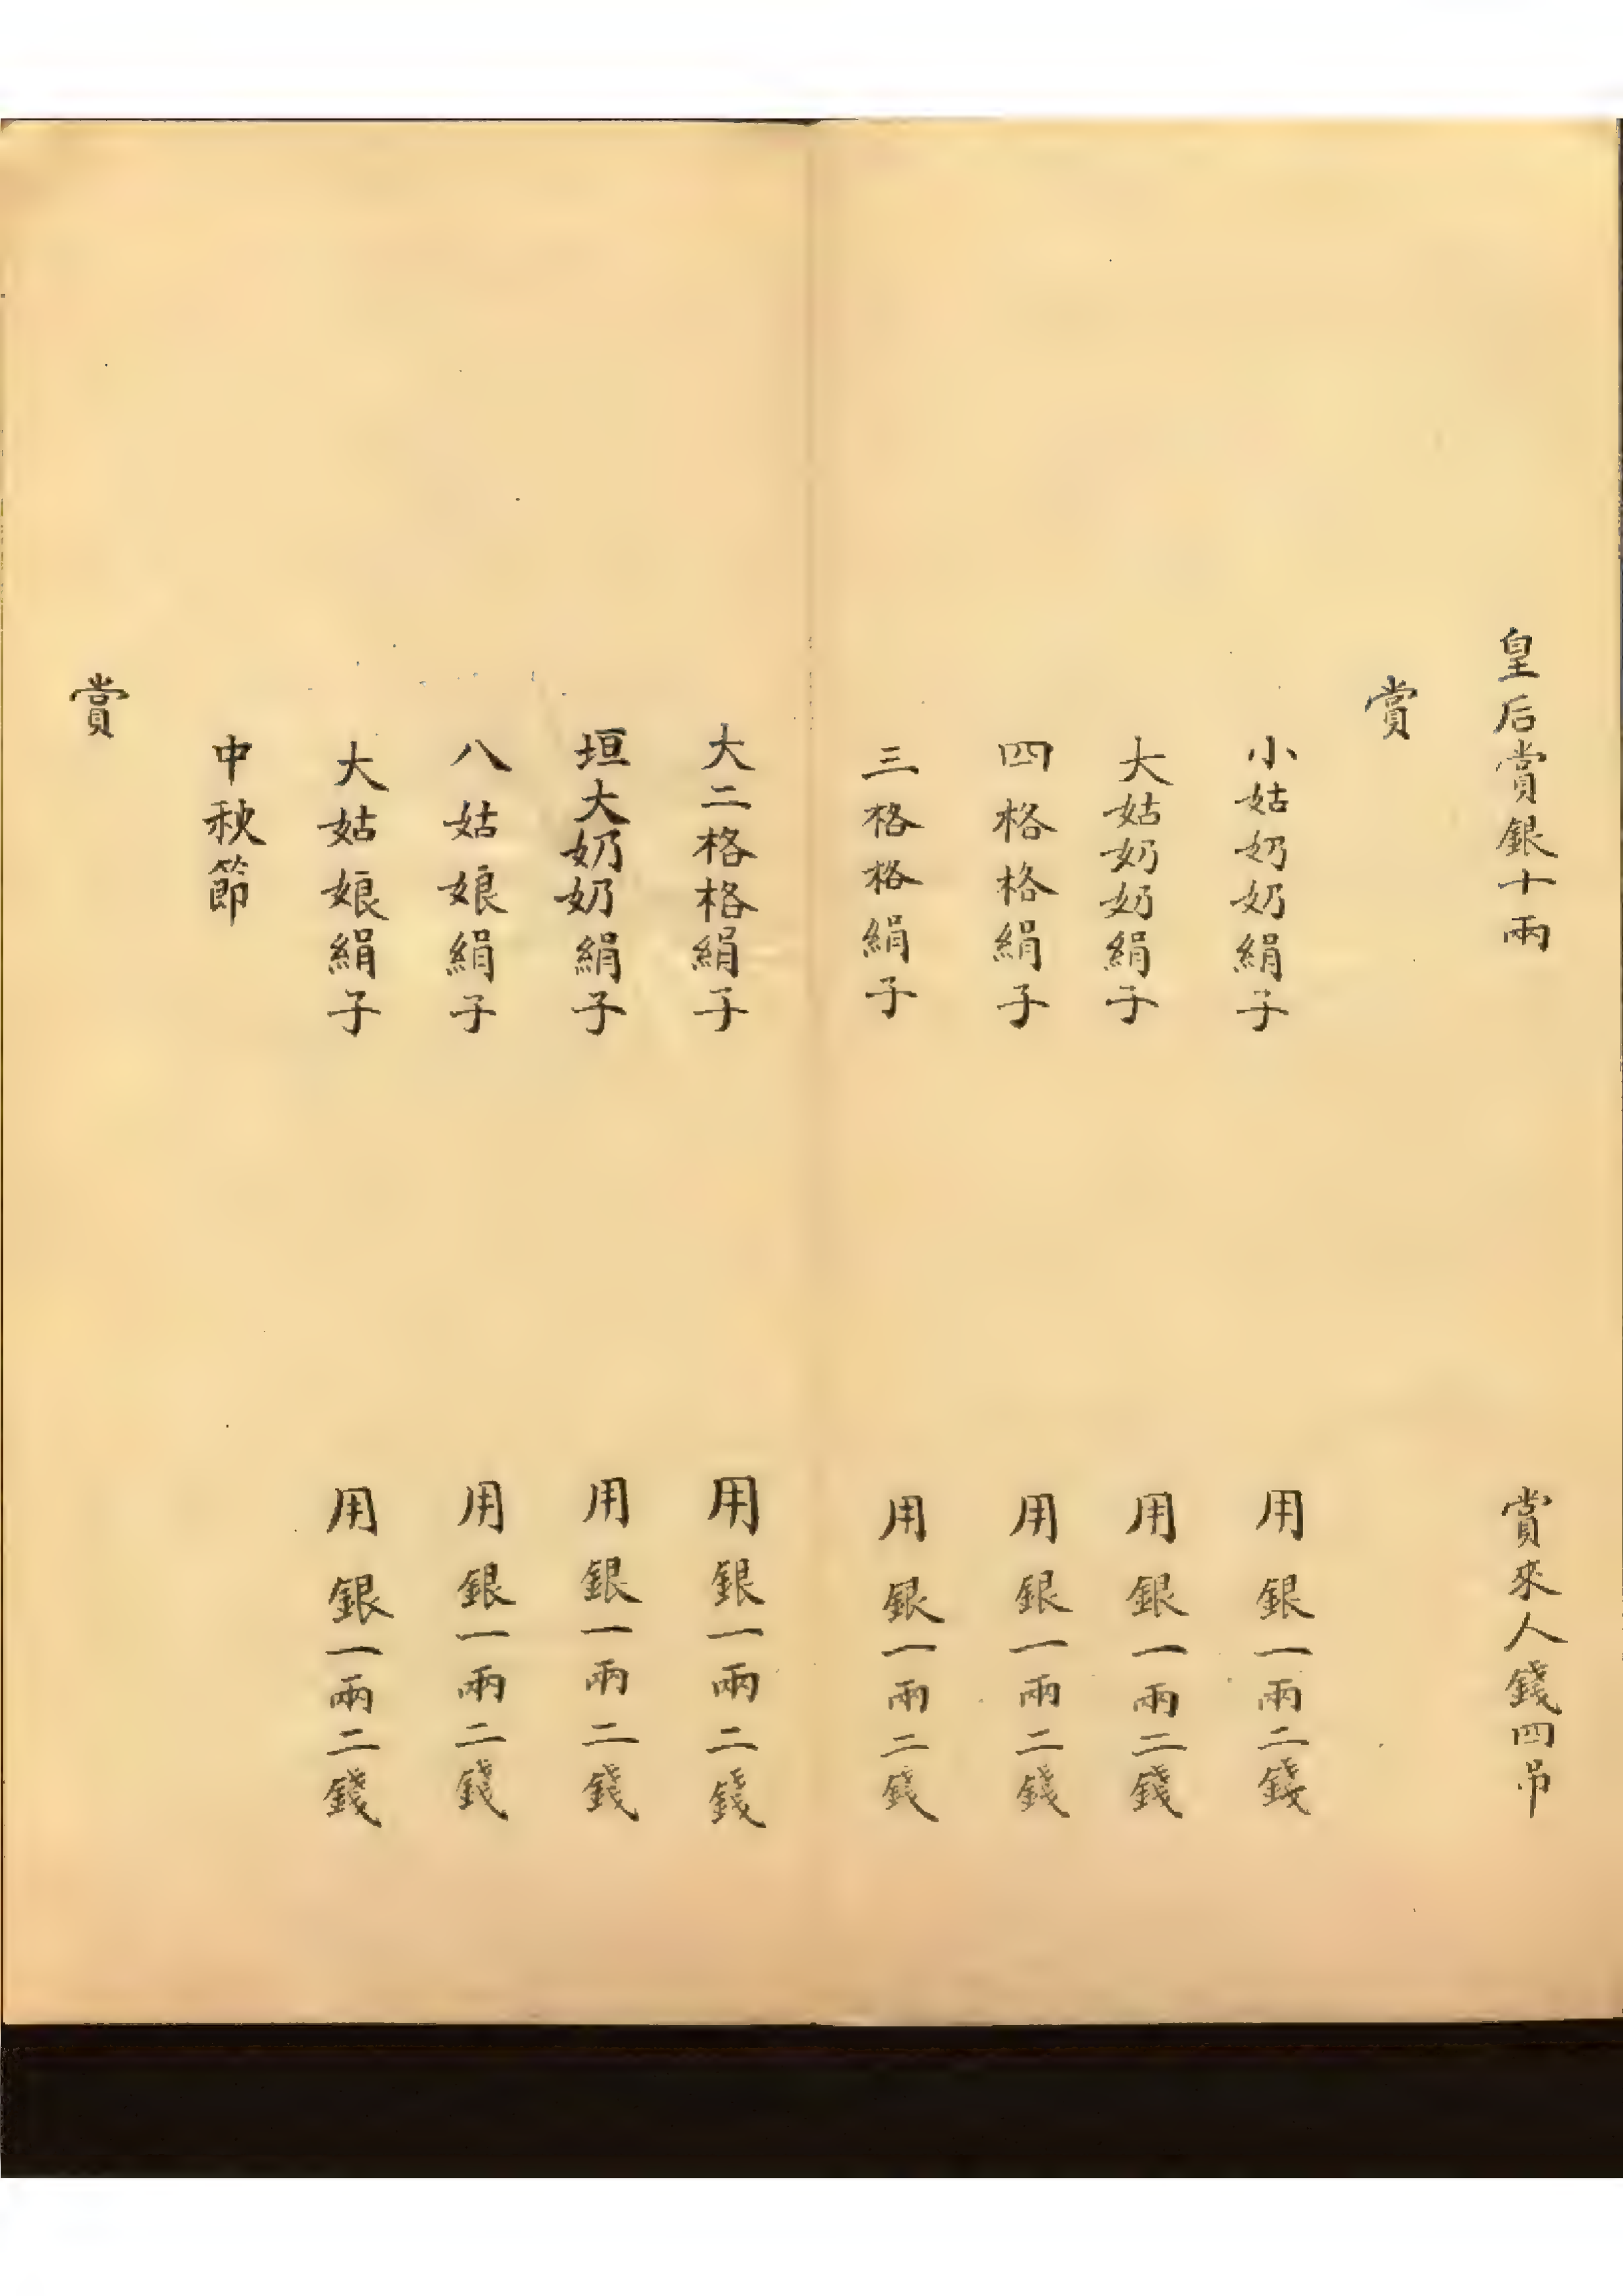 皇后賞銀十兩
賞來人錢四吊
賞
小姑奶奶絹子
用銀一兩二錢
大姑奶奶絹子
用銀一兩二錢
四格格絹子
用銀一兩二錢
三格格絹子
用銀一兩二錢
大二格格絹子
用銀一兩二錢
垣大奶奶絹子
用銀一兩二錢
八姑娘絹子
用銀一兩二錢
大姑娘絹子
用銀一兩二錢
中秋節
賞